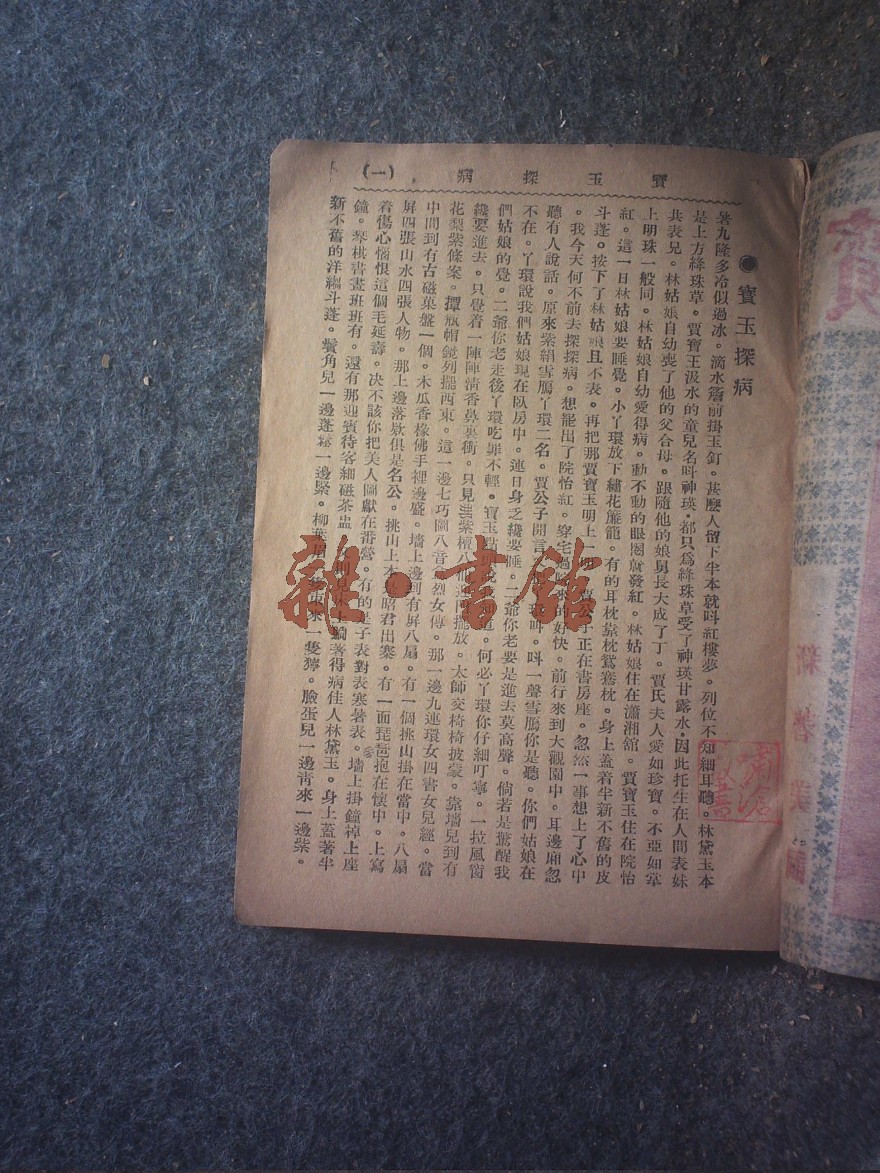 寶玉探病 (一)
●寶玉探病
暑九隆多冷似過冰。滴水簷前掛玉釘。甚麼人留下半本就呌紅樓夢。列位不知細耳聽。林黛玉本
是上方絳珠草。賈寶玉汲水的童兒名呌神瑛。都只爲絳珠草受了神瑛甘露水。因此托生在人間表妹
共表兄。林姑娘自幼喪了他的父合母。跟隨他的娘舅長大成了丁。賈氏夫人愛如珍寶。不亞如掌
上明珠一般同。林姑娘自幼愛得病。動不動的眼圈就發紅。林姑娘住在瀟湘舘。賈寶玉住在院怡
紅。這一日林姑娘要睡覺。小丫環放下繡花簾籠。有的耳枕靠枕鴛鴦枕。身上蓋着半新不舊的皮
斗蓬。按下了林姑娘且不表。再把那賈寶玉明上一明。賈公子正在書房座。忽然一事想上了心中
。我今天何不前去探探病。想罷出了院怡紅。穿宅過院來的好快。前行來到大觀園中。耳邊廂忽
聽有人說話。原來紫絹雪鴈丫環二名。賈公子開言 呌。呌一聲雪鴈你是聽。你們姑娘在
不在。丫環說我們姑娘現在臥房中。連日身乏纔要睡。二爺你老要是進去莫高聲。倘若是驚醒我
們姑娘的覺。二爺你老走後丫環吃罪不輕。寶玉 說 道。何必丫環你仔細叮寧。一拉風窗
纔要進去。只覺着一陣陣清香鼻裏衝。只見 紫檀八仙 擺放。太師交椅椅披蒙。靠墻兒到有
花梨紫條案。撢瓶帽鏡列擺西東。這一邊七巧圖八音 烈女傳。那一邊九連環女四書女兒經。當
中間到有古磁菓盤一個。木瓜香椽佛手裡邊盛。墻上邊到有屏八扇。有一個挑山掛在當中。八扇
屏四張山水四張人物。那上邊落欵俱是名公。挑山上本 昭君出寨。有一面琵琶抱在懷中。上寫
着傷心惱恨這個毛延壽。决不該你把美人圖獻在番營。有的是子表對表寒暑表。墻上掛鐘棹上座
鐘。琴棋書畫班班有。還有那迎賓待客細磁茶盅。 則見床上躺著得病佳人林黛玉。身上蓋著半
新不舊的洋縐斗蓬。鬢角兒一邊蓬鬆一邊緊。柳葉 來一隻獰。臉蛋兒一邊靑來一邊紫。
雜·書舘